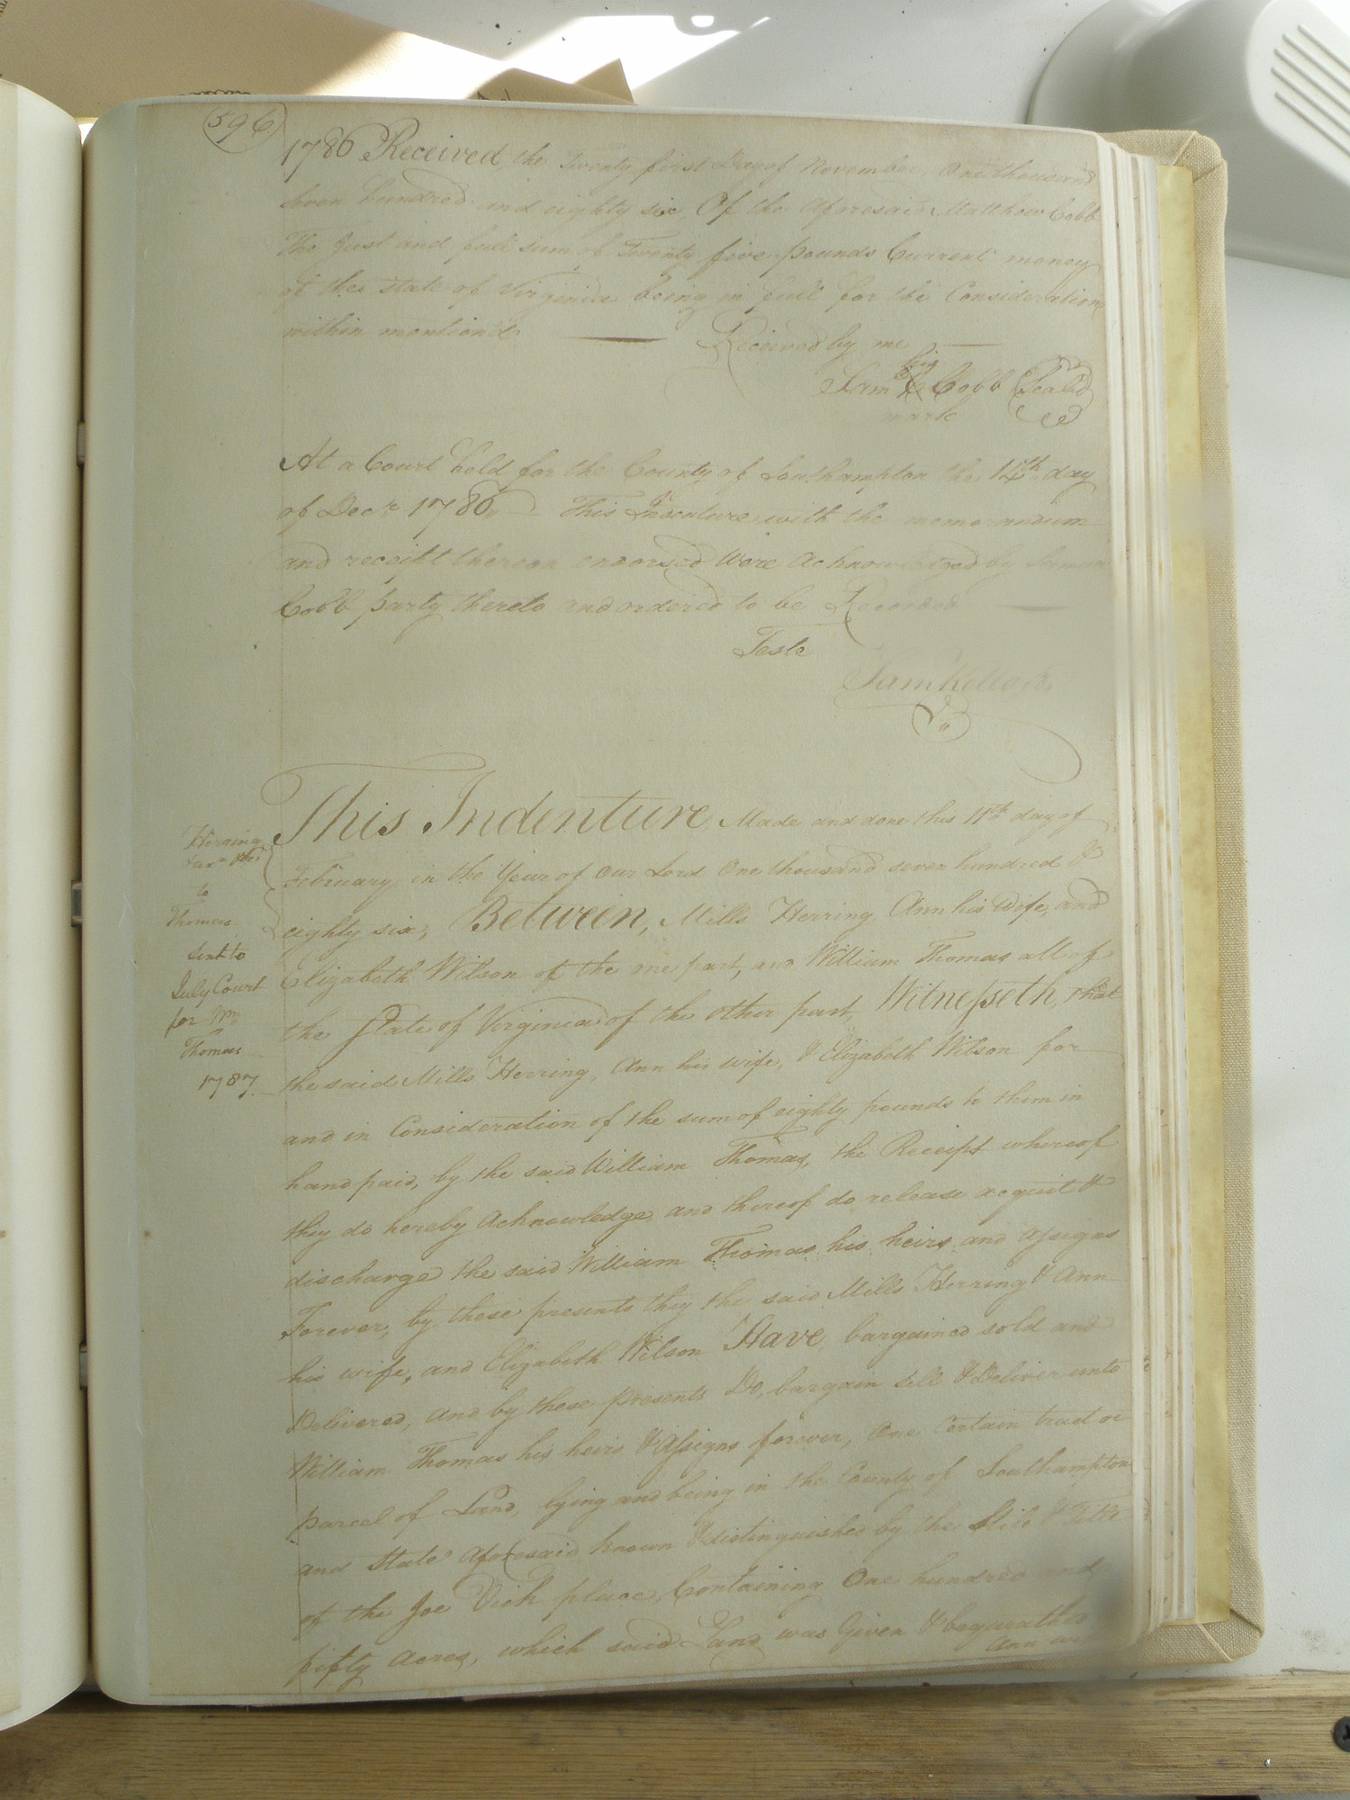 596
1786 Received, the Twenty first Day of November One thousand
seven hundred and eighty six Of the Aforesaid Matthew Cobb
The Just and full sum of Twenty five pounds Current money
of the state of Virginia being in full for the Consideration
within mentiond Received by me
his
Sam Cobb Seald
mark
At a Court held for the County of Southampton the 14th day
of Decr 1786 This Indenture with the memorandum
and receipt thereon endorsed Were Acknowledged by
Cobb party thereto and ordered to be Recorded
Teste
Sam Kello
This Indenture Made and done this 11th day of
February in the Year of our Lord One thousand seven hundred &
eighty six, Between, Mills Herring Ann his Wife, and
Elizabeth Wilson of the one part, and William Thomas all of
the State of Virginia of the other part, Witnesseth, that
the said Mills Herring, Ann his wife, & Elizabeth Wilson for
and in Consideration of the sum of eighty pounds to them in
hand paid, by the said William Thomas, the Receipt whereof
they do hereby Acknowledge and thereof do release acquit &
discharge the said William Thomas his heirs and assigns
Forever, by these presents they the said Mills Herring & Ann
his wife, and Elizabeth Wilson Have bargained sold and
Delivered, and by these presents Do, bargain sell & Deliver unto
William Thomas his heirs & Assigns forever, One Certain tract or
parcel of Land, lying and being in the County of Southampton
and State aforesaid known & distinguished by the &
of the Joe Vick place, Containing One hundred and
fifty Acres, which said Land was Given & bequeathed
Ann
Herring
to
Thomas
Sent to
July Court
for Wm
Thomas
1787